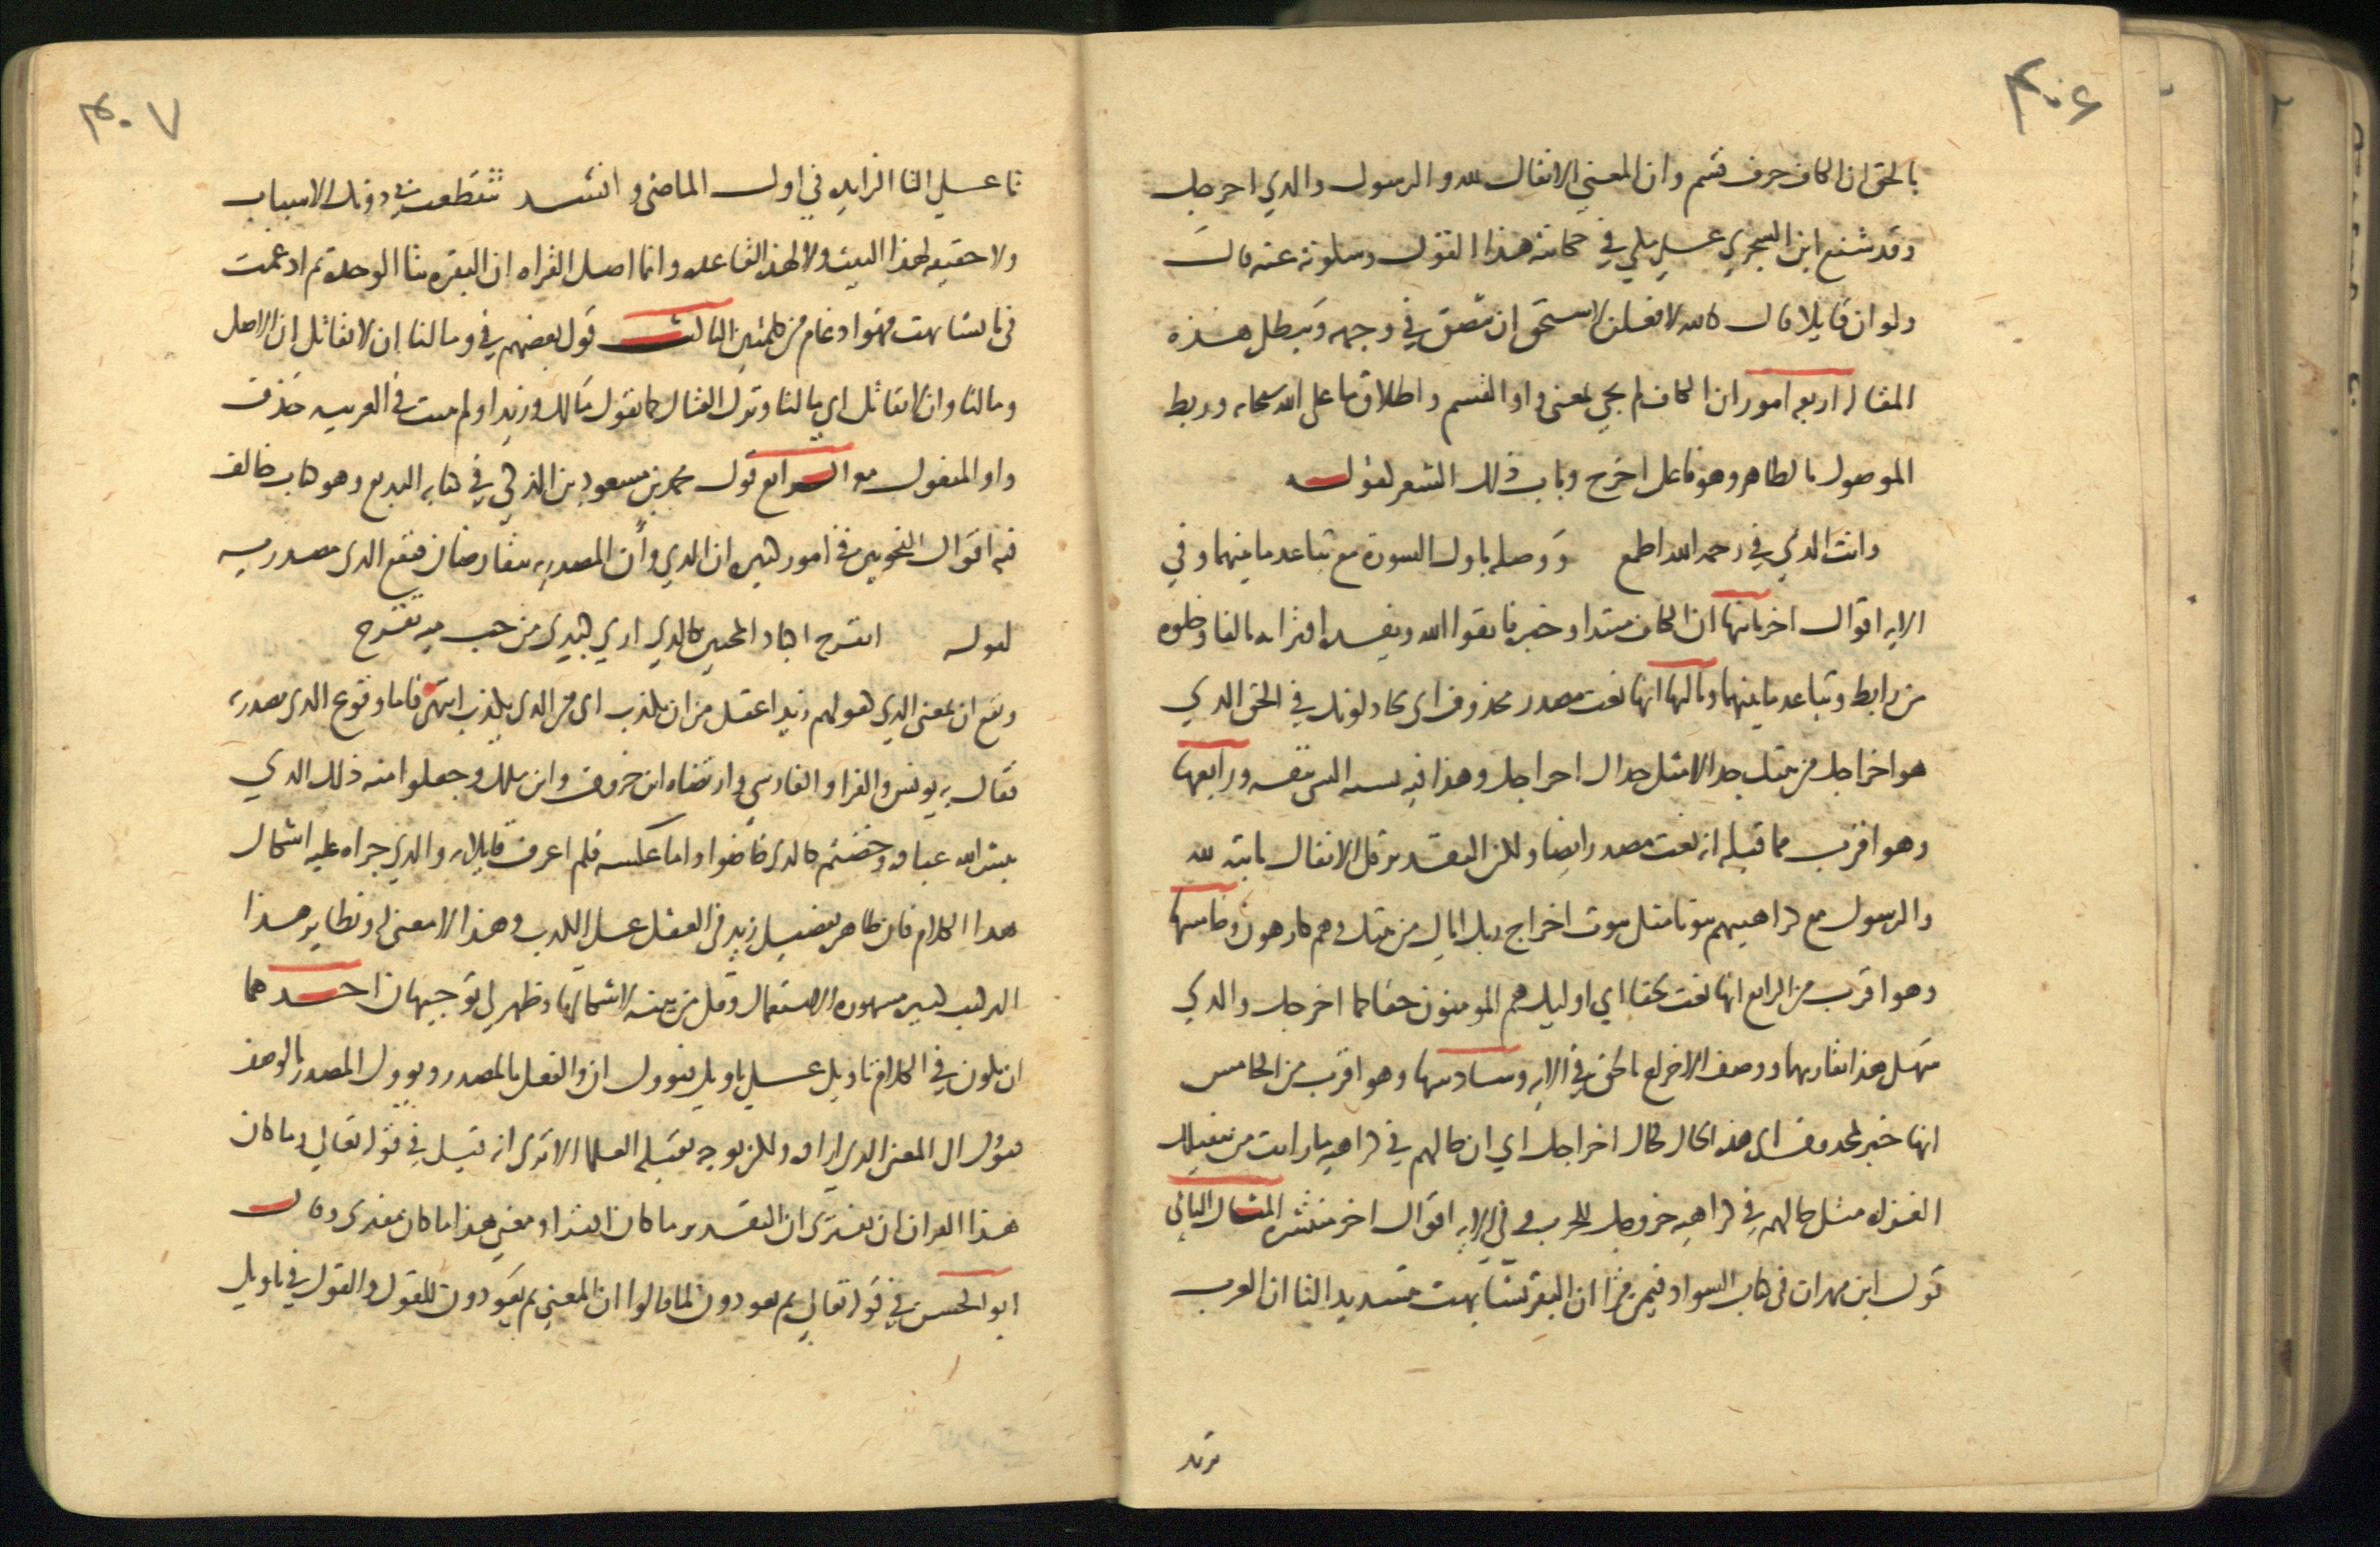 ۴۰۶
بالحق ان الكاف حرف قسم وان المعني الانفال لله والرسول والذي اخرجك
وقد شنع ابن الشجري علي مكي في حكايته هذا القول وسكوته عنه قال
ولو ان قايلا قال كالله لافعلن لاستحق ان يبصق في وجهه ويبطل هذه
المقاله اربعه امور ان الكاف لم تجي بمعنى واو القسم واطلاق ما على الله سبحانه وربط
الموصول بالظاهر وهو فاعل اخرج وباب ذلك الشعر لقوله
وانت الذي في رحمه الله اطمع ووصله باول السورة مع تباعد ما بينهما وفي
الايه اقوال اخر ثانيها ان الكاف مبتدا وخبره فاتقوا الله ويفسده اقترانه بالفا وخلوه
من رابط وتباعد ما بينهما وثالثها انها نعت مصدر محذوف اي يجادلونك في الحق الذي
هو اخراجك من بيتك جدالا مثل جدال اخراجك وهذا فيه تشبيه الشي بنفسه ورابعها
وهو اقرب مما قبله انه نعت مصدر ايضا ولكن التقدير قل الانفال ثابته لله
والرسول مع كراهيتهم ثبوتا مثل ثبوت اخراج ربك اياك من بيتك وهم كارهون وخامسها
وهو اقرب من الرابع انها نعت لحقا اي اوليك هم المومنون حقا كما اخرجك والذي
سهل هذا تقاربهما ووصف الاخراج بالحق في الايه وسادسها وهو اقرب من الخامس
انها خبر لمحذوف اي هذه الحال كحال اخراجك اي ان حالهم في كراهيه ما رايت من تنفيلك
الغزاه مثل حالهم في كراهيه خروجك للحرب وفي الايه اقوال اخر منتشره المثال الثاني
قول ابن مهران في كتاب الشواذ فيمن قرا ان البقر تشابهت بتشديد التا ان العرب
تزيد
۴۰۷
تا علي التا الزايده في اول الماضي وانشد تتقطعت بي دونك الاسباب
ولا حقيقه لهذا البيت ولا لهذه القاعده وانما اصل القراه ان البقره بتا الوحده ثم ادغمت
في تا تشابهت فهو ادغام من كلمتين الثالث قول بعضهم في وما لنا ان لا نقاتل ان الاصل
وما لنا وان لا نقاتل اي ما لنا وترك القتال كما تقول مالك وزيدا ولم يثبت في العربيه حذف
واو المفعول معه الرابع قول محمد بن مسعود بن الذكي في كتابه البديع وهو كتاب خالف
فيه اقوال النحويين في امور كثيره ان الذي وأن المصدريه يتقارضان فتقع الذي مصدريه
كقوله اتقرح اكباد المحبين كالذي اري كبدي من حب ميه تقرح
وتقع ان بمعنى الذي كقولهم زيد اعقل من ان يكذب اي من الذي يكذب انتهى فاما وقوع الذي مصدريه
فقال به يونس والفرا والفارسي وارتضاه ابن خروف وابن ملك وجعلوا منه ذلك الذي
يبشر الله عباده وخضتم كالذي خاضوا واما عكسه فلم اعرف قايلا به والذي جراه عليه اشكال
هذا الكلام فان ظاهره تفضيل زيد في العقل على الكذب وهذا لا معنى له ونظاير هذا
التركيب كثيره مشهورة الاستعمال وقل من يتنبه لاشكالها وظهر لي توجيهان احدهما
ان يكون في الكلام تاويل علي تاويل فيوول ان والفعل بالمصدر ويوول المصدر بالوصف
فيؤول الى المعنى الذي اراده ولكن بوجه يقبله العلما الا ترى انه قيل في قوله تعالي وما كان
هذا القران ان يفترى ان التقدير ما كان افترا ومعنى هذا ما كان مفترى وقال
ابو الحسن في قوله تعالي ثم يعودون لما قالوا ان المعني ثم يعودون للقول والقول في تاويل